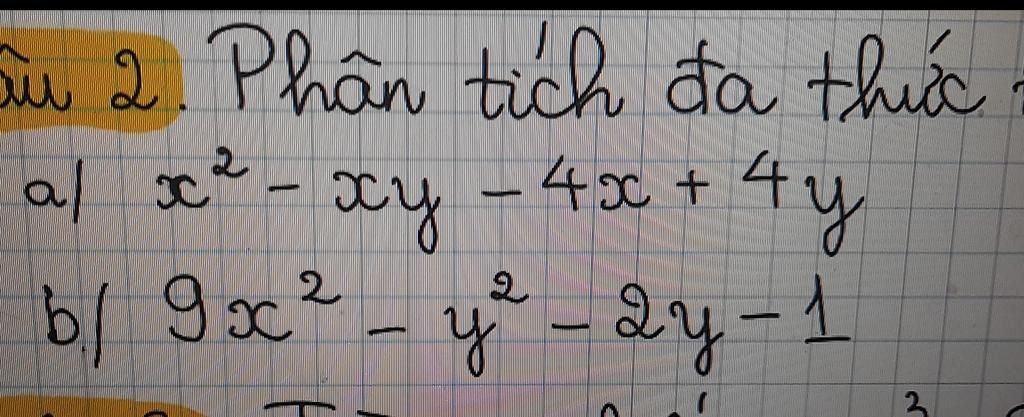 âu 2. Phân tích đa thức
a/ x² - xy - 4x + 4y
b/ 9x² - y² - 2y - 1